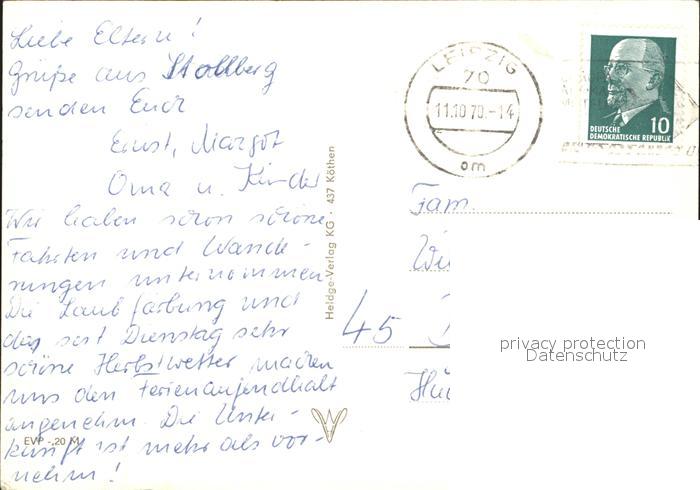 Liebe Eltern!
Grüße aus Stollberg
senden Euch
Ernst, Margot
Oma u. Kinder
Wir haben schon schöne
Fahrten und Wande-
rungen unternommen
Die Laubfärbung und
das seit Dienstag sehr
schöne Herbstwetter machen
uns den Ferienaufendhalt
angenehm. Die Unter-
kunft ist mehr als vor-
nehm!
EVP -,20 M
Heldge-Verlag KG · 437 Köthen
LEIPZIG
70
11.10.70.-14
om
DEUTSCHE
DEMOKRATISCHE REPUBLIK
10
Fam.
45
privacy protection
Datenschutz